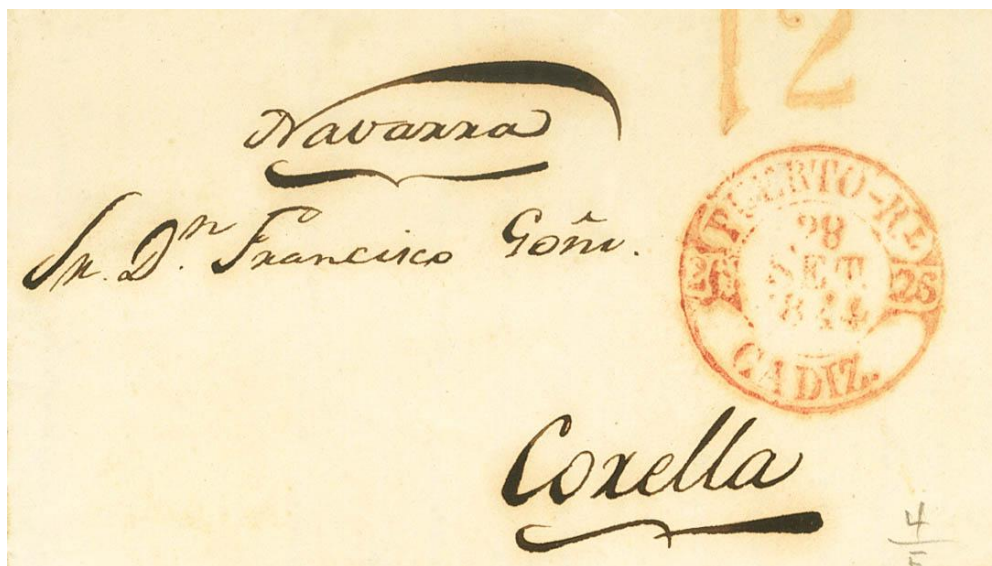 12
Navarra
Sr. Dn. Francisco Goñi.
PUERTO-RL
28
SET.
1844
28
CADIZ.
Corella
4
5